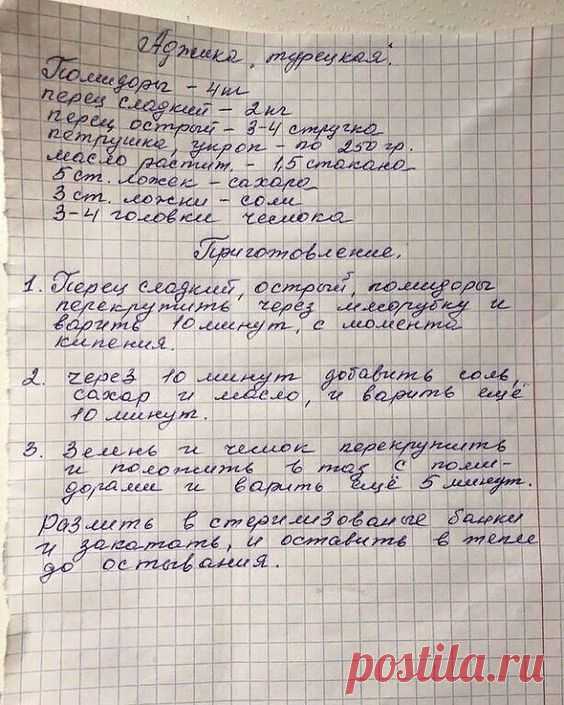 Аджика, турецкая.
Помидоры - 4 кг
перец сладкий - 2 кг
перец острый - 3-4 стручка
петрушка, укроп - по 250 гр.
масло растит. - 1,5 стакана
5 ст. ложек - сахара
3 ст. ложки - соли
3-4 головки чеснока
Приготовление.
1. Перец сладкий, острый, помидоры
перекрутить через мясорубку и
варить 10 минут, с момента
кипения.
2. через 10 минут добавить соль,
сахар и масло, и варить ещё
10 минут.
3. Зелень и чеснок перекрутить
и положить в таз с поми-
дорами и варить ещё 5 минут.
Разлить в стерилизованые банки
и закатать, и оставить в тепле
до остывания.
postila.ru